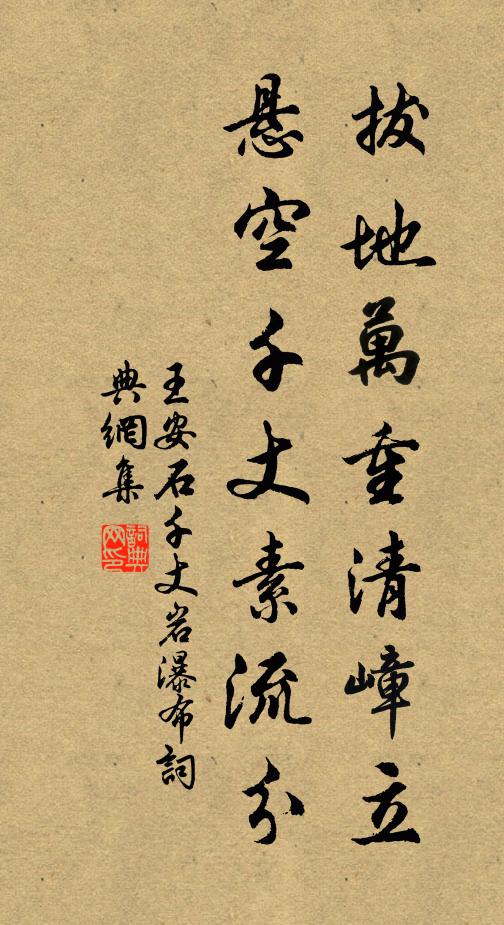 拔地萬重清嶂立
悬空千丈素流分
王安石千丈岩瀑布詞
典網集
詞典网印